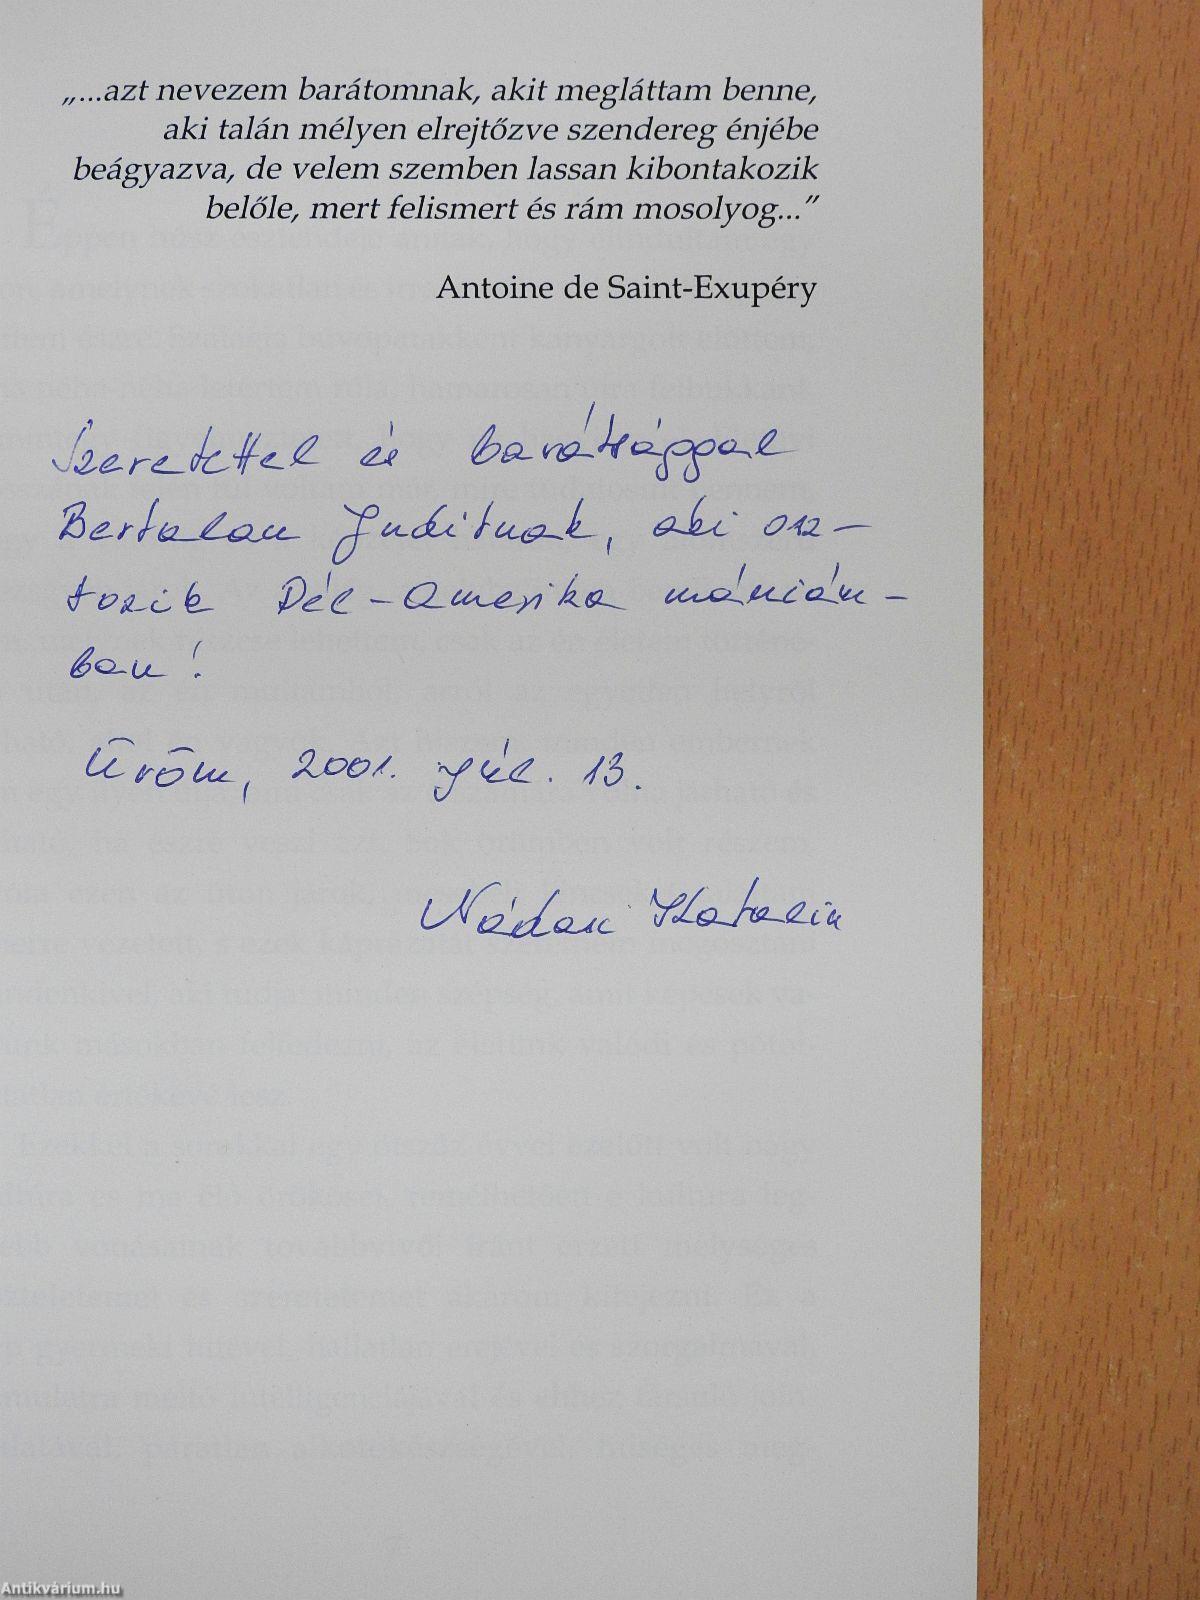 „...azt nevezem barátomnak, akit megláttam benne,
aki talán mélyen elrejtőzve szendereg énjébe
beágyazva, de velem szemben lassan kibontakozik
belőle, mert felismert és rám mosolyog...”
Antoine de Saint-Exupéry
Szeretettel és barátsággal
Bertalan Juditnak, aki osz-
tozik Dél-Amerika mániám-
ban!
Üröm, 2001. júl. 13.
Nádasi Katalin
Antikvárium.hu